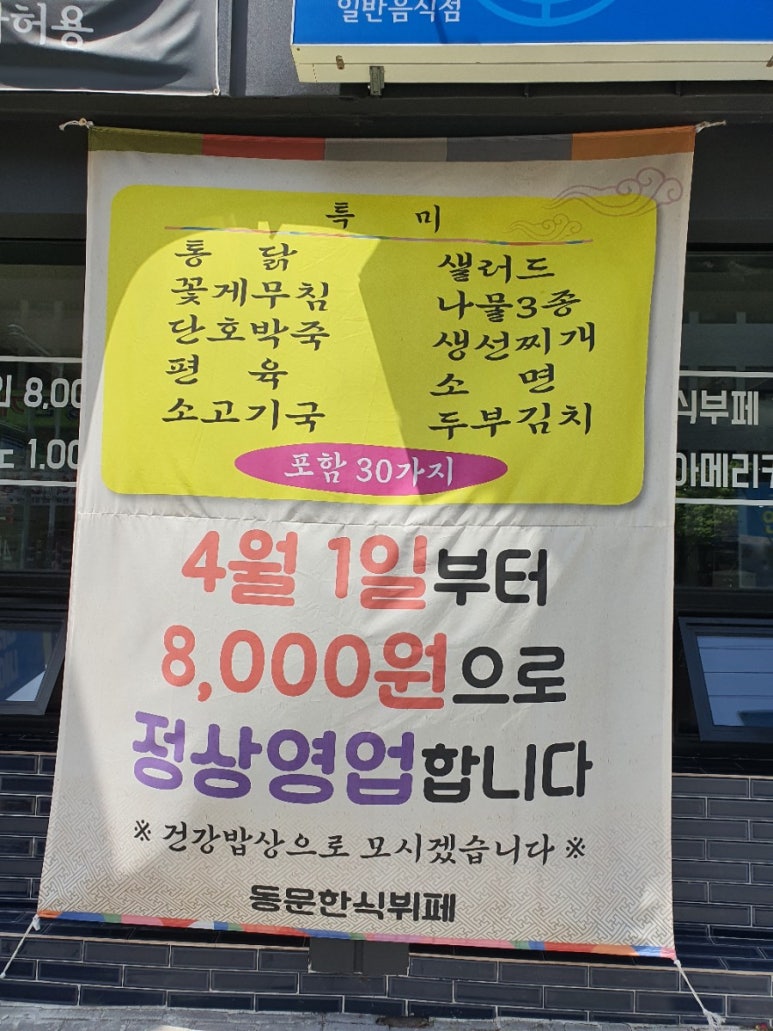 허용
일반음식점
특 미
통 닭
꽃게무침
단호박죽
편 육
소고기국
샐러드
나물3종
생선찌개
소 면
두부김치
포함 30가지
4월 1일부터
8,000원으로
정상영업합니다
※ 건강밥상으로 모시겠습니다 ※
동문한식뷔페
인 8,00
1.00
식부페
아메리카